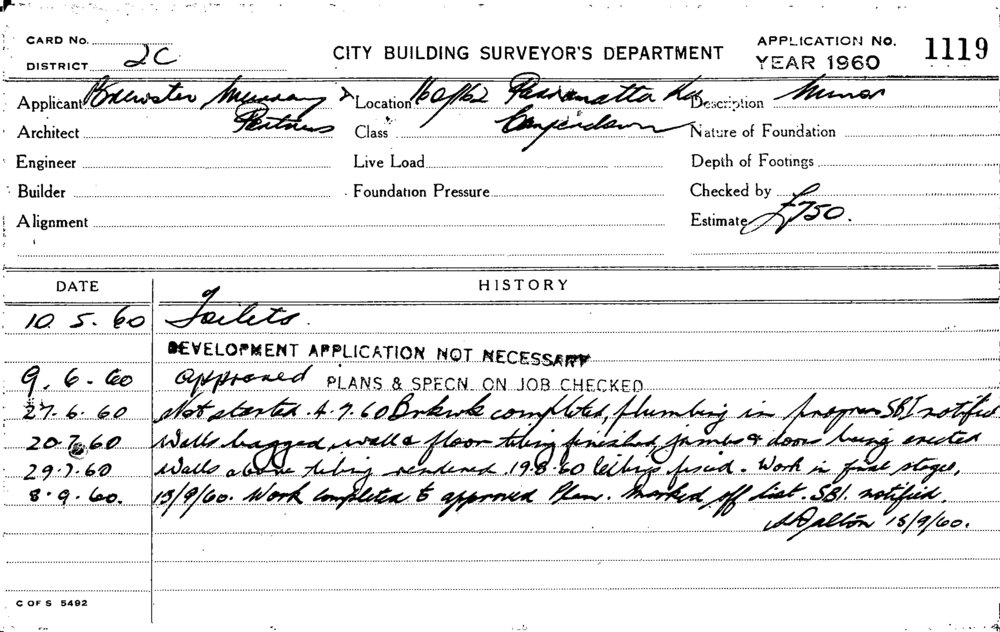 CARD No.
DISTRICT 2C
CITY BUILDING SURVEYOR'S DEPARTMENT
APPLICATION No. 1119
YEAR 1960
Applicant Brewster Murray & Location 160/162 Parramatta Rd Description Minor
Architect Partners Class Camperdown Nature of Foundation
Engineer Live Load Depth of Footings
Builder Foundation Pressure Checked by
Alignment Estimate £750.
DATE HISTORY
10. 5. 60 Toilets.
DEVELOPMENT APPLICATION NOT NECESSARY
9. 6. 60 approved PLANS & SPECN. ON JOB CHECKED
27. 6. 60 Not started. 4.7.60 Brkwk completed, plumbing in progress SBI notified
20.7.60 Walls bagged, wall & floor tiling finished, jambs & doors being erected
29.7.60 Walls above tiling rendered 19.8.60 ceilings fixed. Work in final stages.
8.9.60. 13/9/60. Work completed to approved Plan. Marked off list. SBI. notified.
Dalton 15/9/60.
C OF S 5492